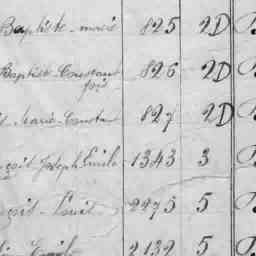 Baptiste Marie 825 2D B
Baptiste Constant 826 2D B
Marie Constan 827 2D B
çois Joseph Emile 1343 3 B
çois Louis 2975 5 B
Emile 2132 5 B